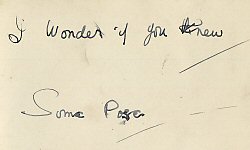 I Wonder if you knew
Some Poge